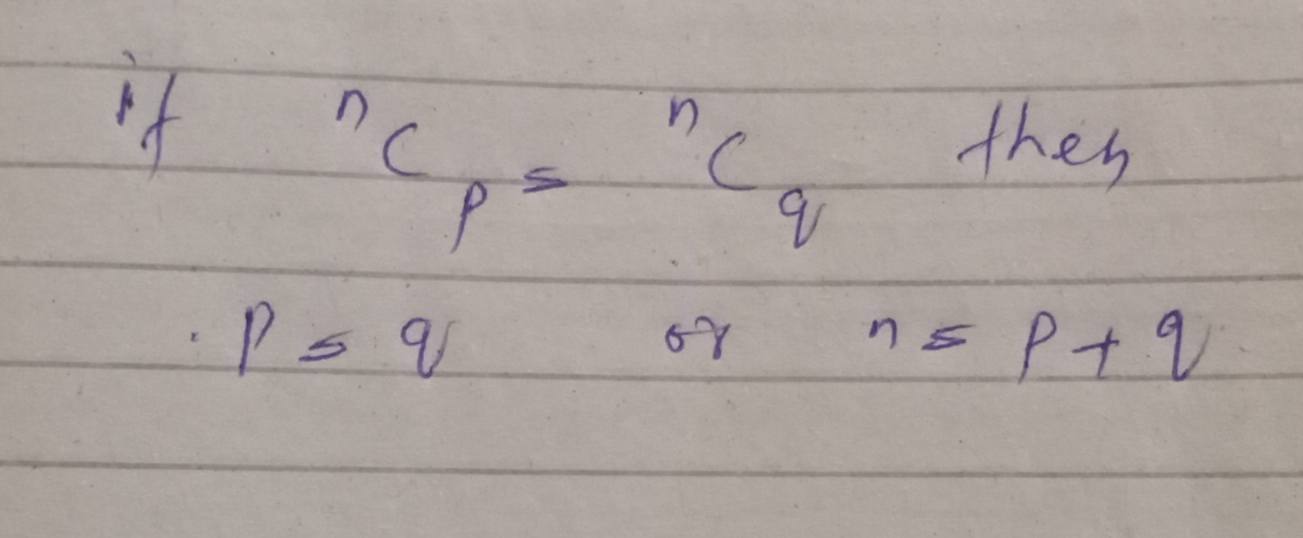 if ⁿC_p = ⁿC_q then
p = q or n = p + q